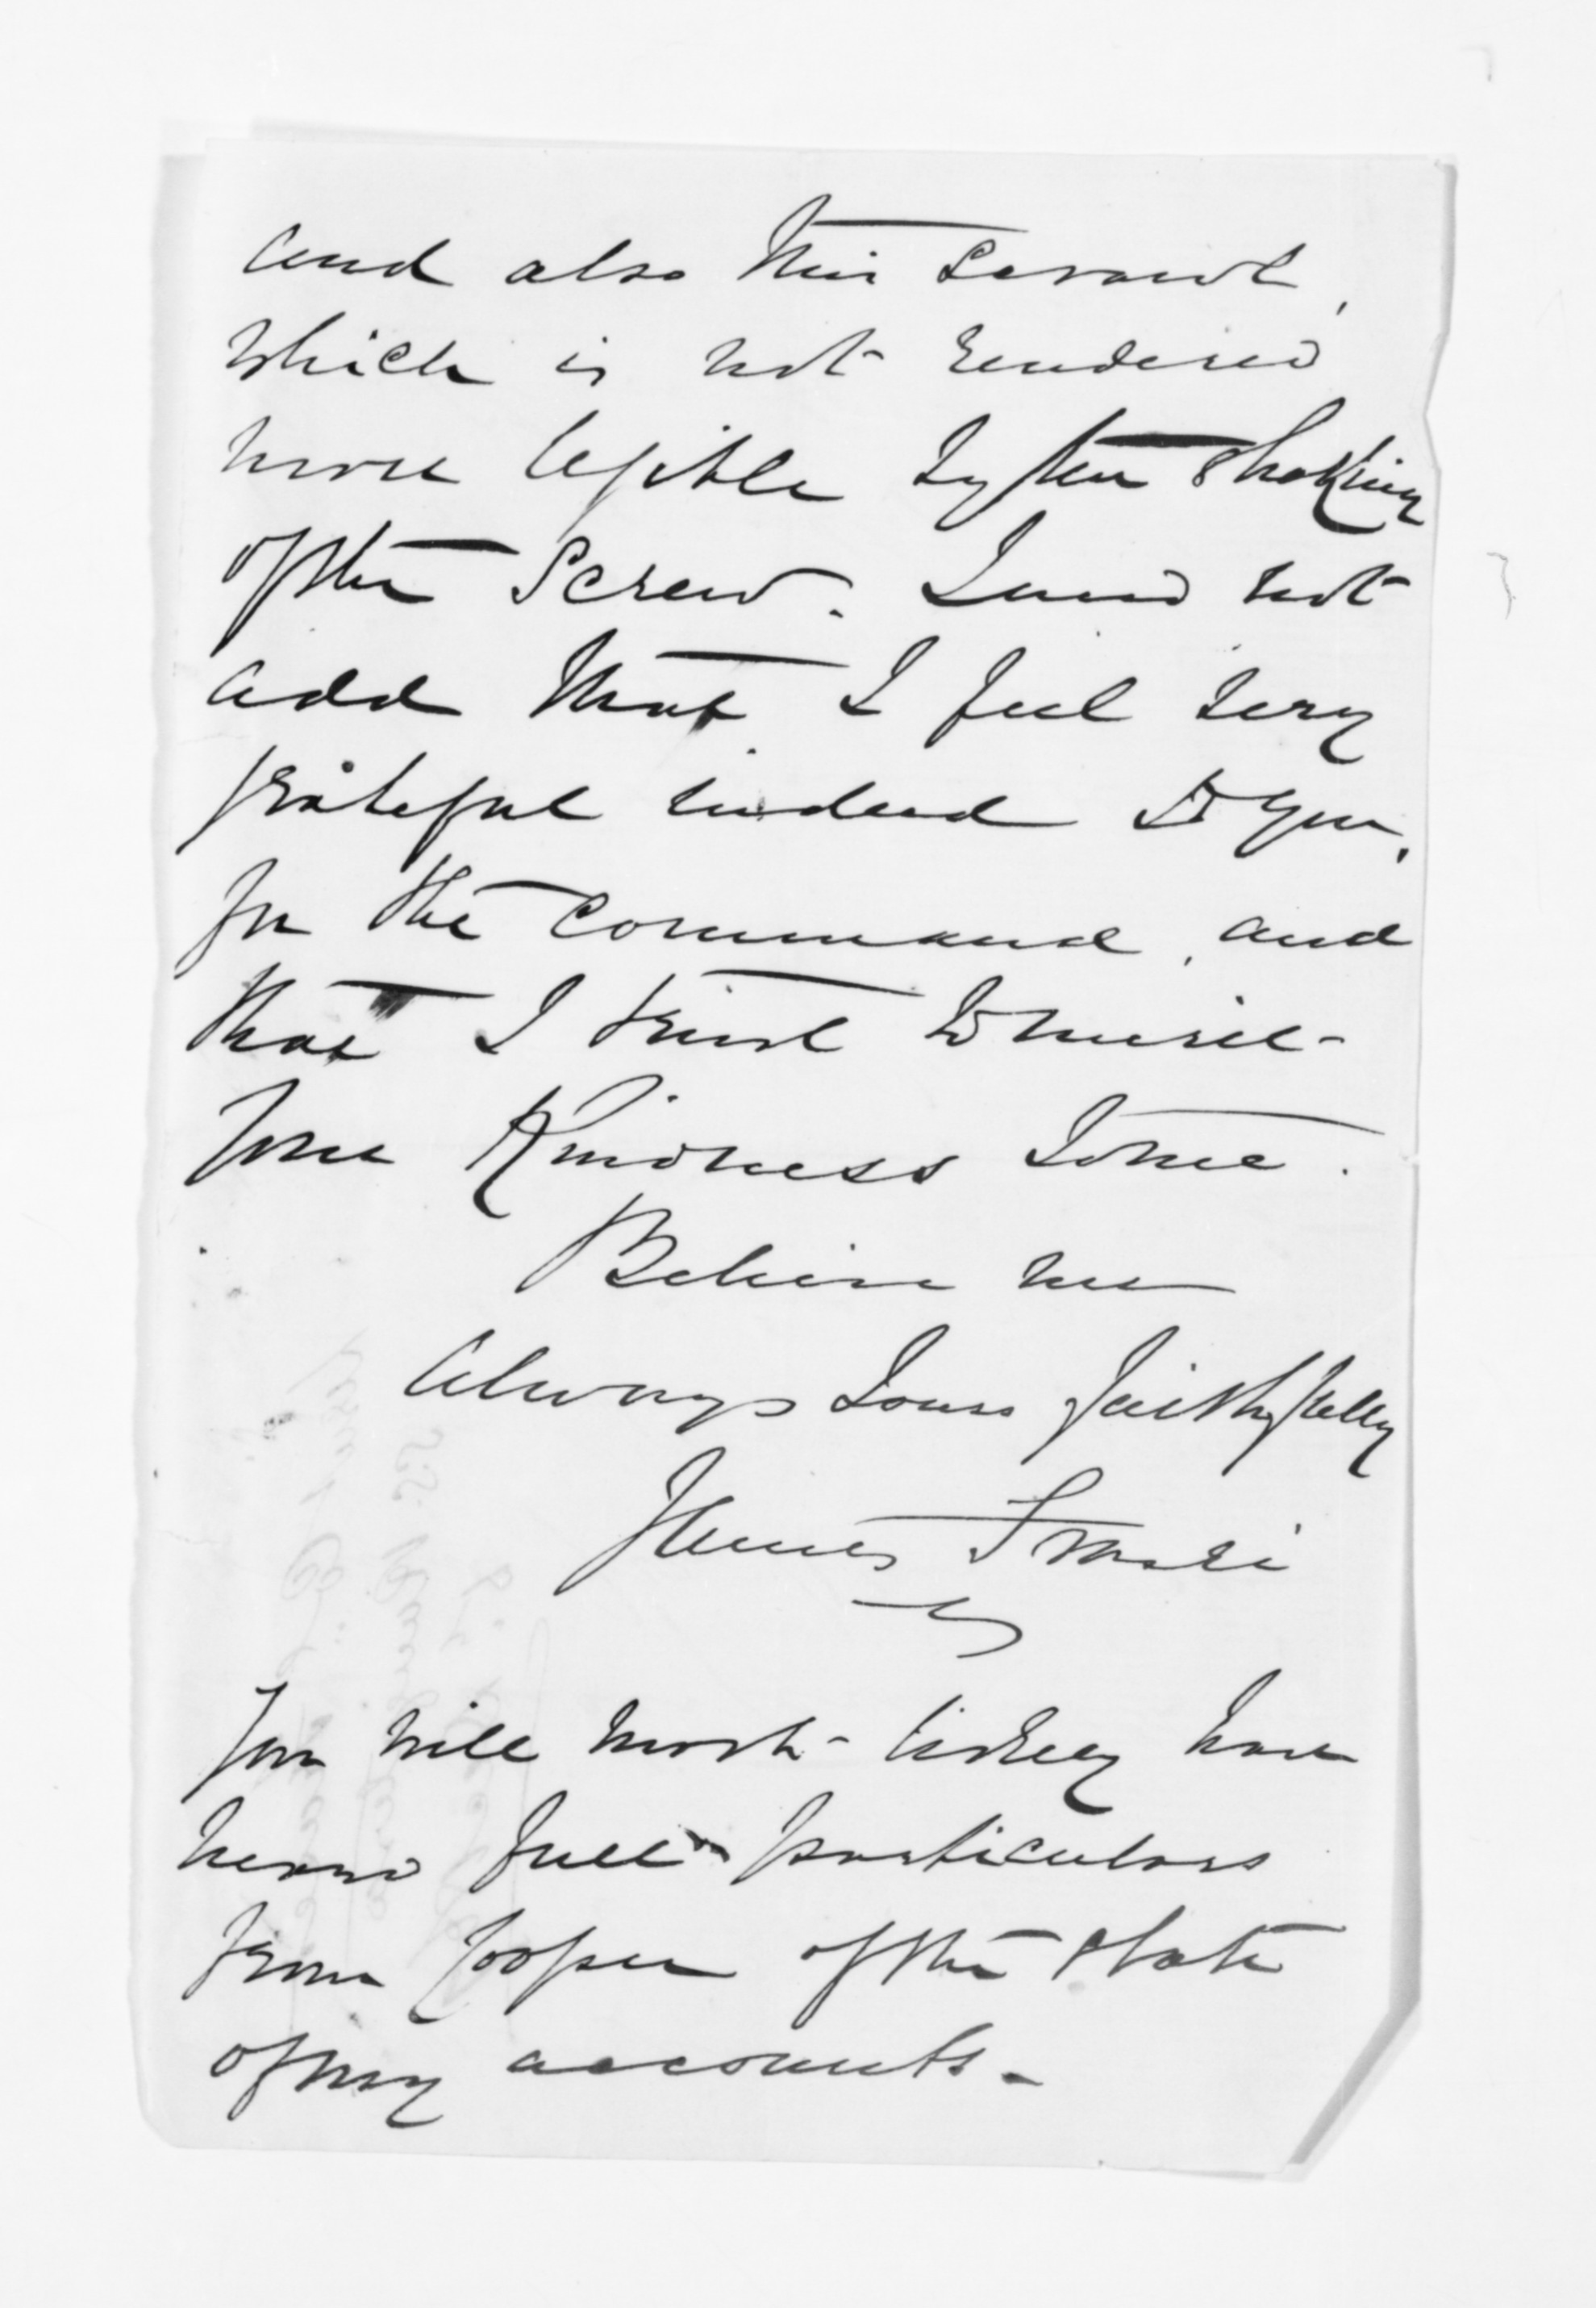 and also this scrawl,
which is not rendered
more legible by the shaking
of the Screw. I need not
add that I feel very
grateful indeed to you,
for the command, and
that I trust to merit
your Kindness to me.
Believe me
always Yours faithfully
You will most likely have
heard full particulars
from Cooper of the state
of my accounts.